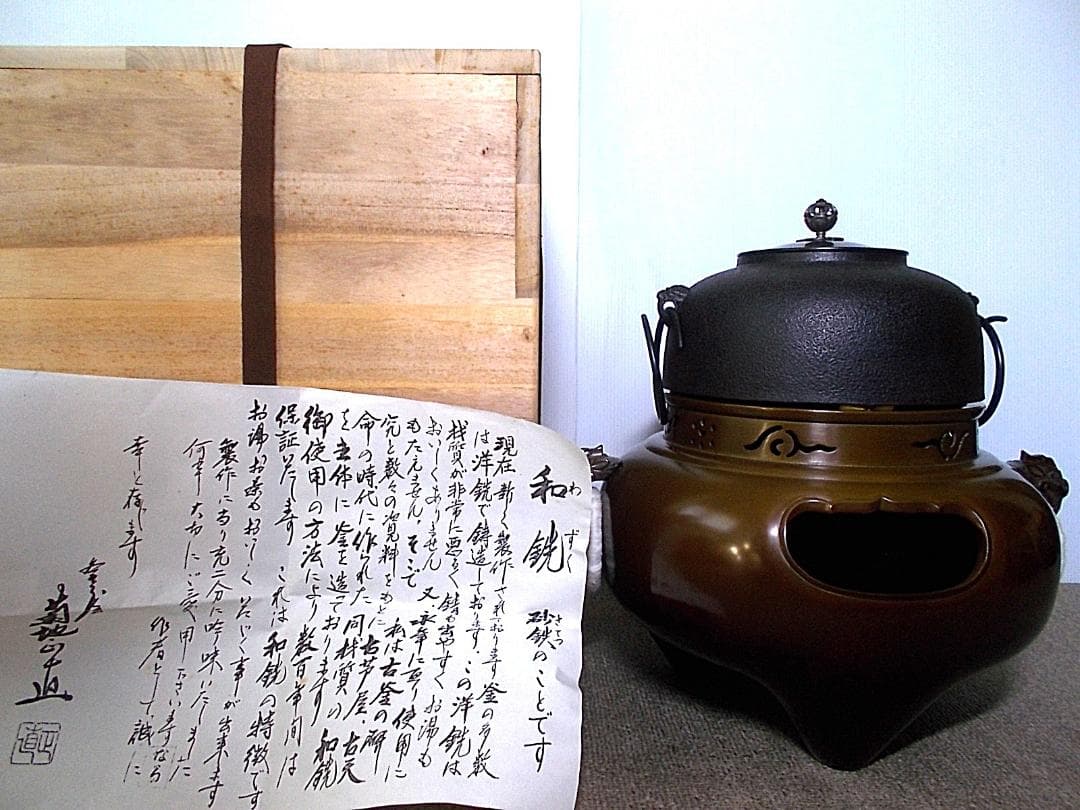 和銑 砂鉄のことです
わずく さてつ
現在、新しく製作されております釜の多数
は洋銑で鋳造しております。この洋銑は
材質が非常に悪るく錆が出やすくお湯も
おいしくありません 又、永年に亘り使用に
もたえません。そこで 私は古釜の研
究と数々の資料をもとに古芦屋、古天
命の時代に作られた同材質の和銑
を主体に釜を造っております
御使用の方法により数百年間は
保証いたします これは和銑の特徴です
お湯お茶もおいしくいただく事が出来ます
製作に当り充二分に吟味いたしました
何卒大切にご愛用下さい
作者として誠に
幸と存じます
菊地正直
正直